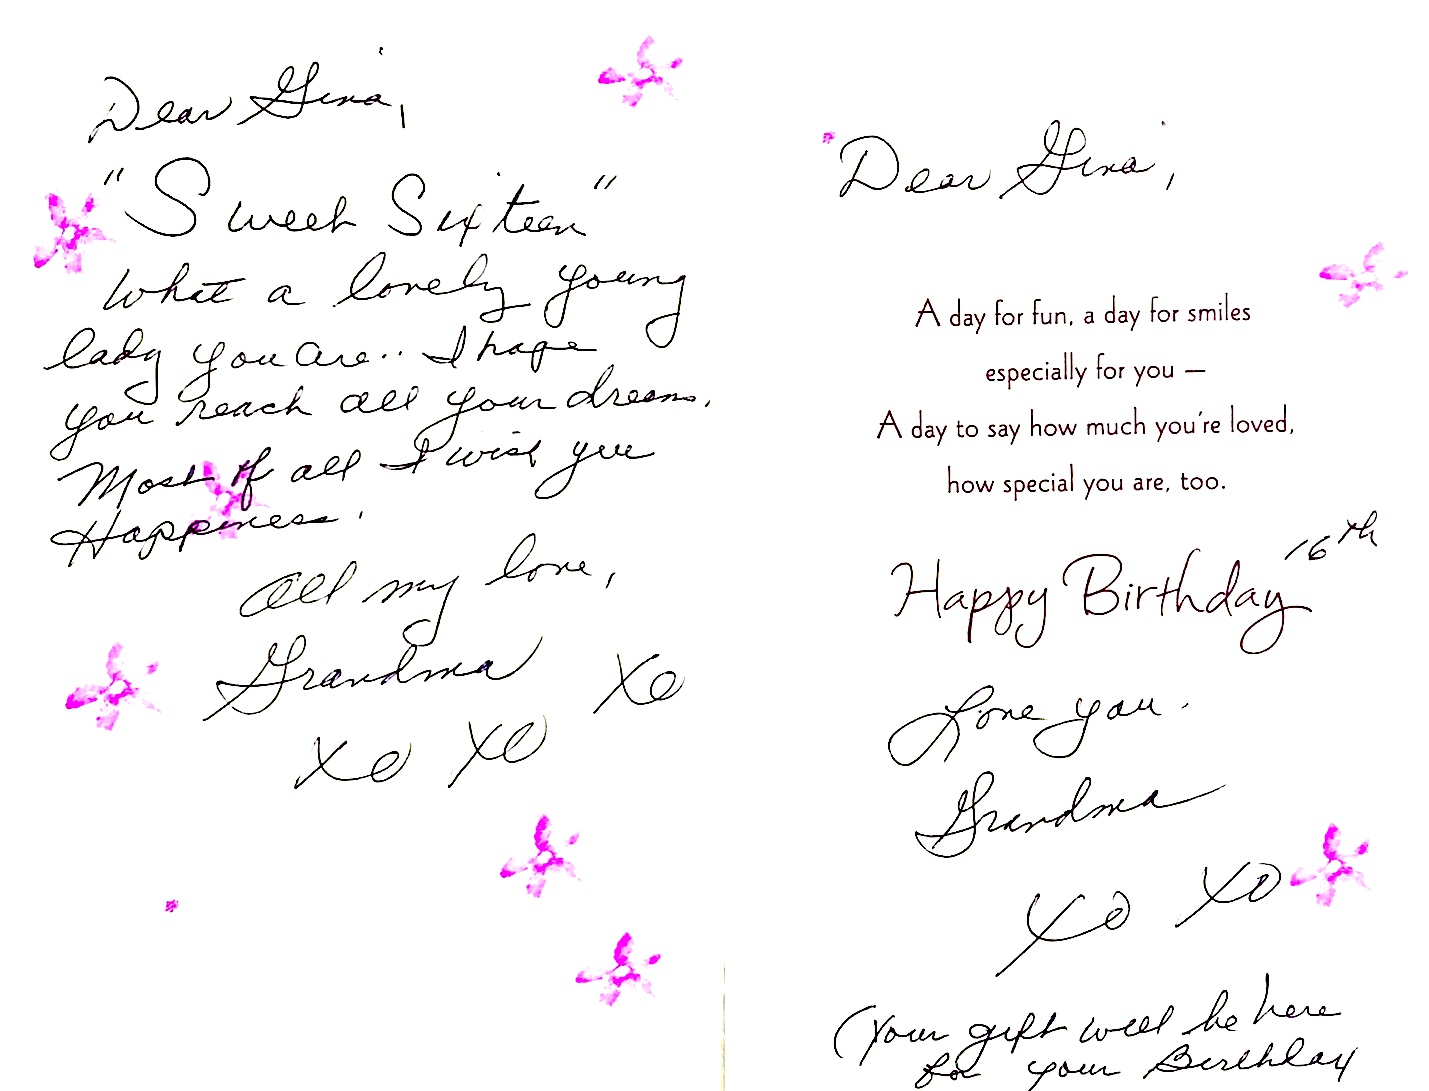 Dear Gina,
"Sweet Sixteen"
What a lovely young
lady you are.. I hope
you reach all your dreams.
Most of all I wish you
Happiness.
All my love,
Grandma
XO
XO XO
Dear Gina,
A day for fun, a day for smiles
especially for you —
A day to say how much you're loved,
how special you are, too.
16th
Happy Birthday
Love you.
Grandma
XO XO
(Your gift will be here
for your Birthday